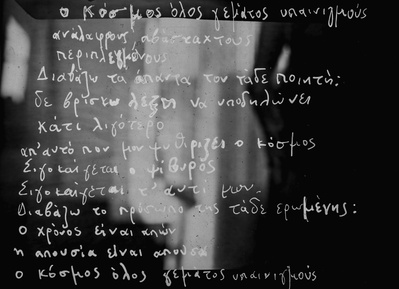 ο κόσμος όλος γεμάτος υπαινιγμούς
ανάλαφρους αβάσταχτους
περιπλεγμένους
Διαβάζω τα άπαντα του τάδε ποιητή:
δε βρίσκω λέξη να υποδηλώνει
κάτι λιγότερο
απ' αυτό που μου ψιθυρίζει ο κόσμος
Σιγοκαίγεται ο ψίθυρος
Σιγοκαίγεται τ' αυτί μου
Διαβάζω το πρόσωπο της τάδε ερωμένης:
ο χρόνος είναι απών
η απουσία είναι απούσα
ο κόσμος όλος γεμάτος υπαινιγμούς